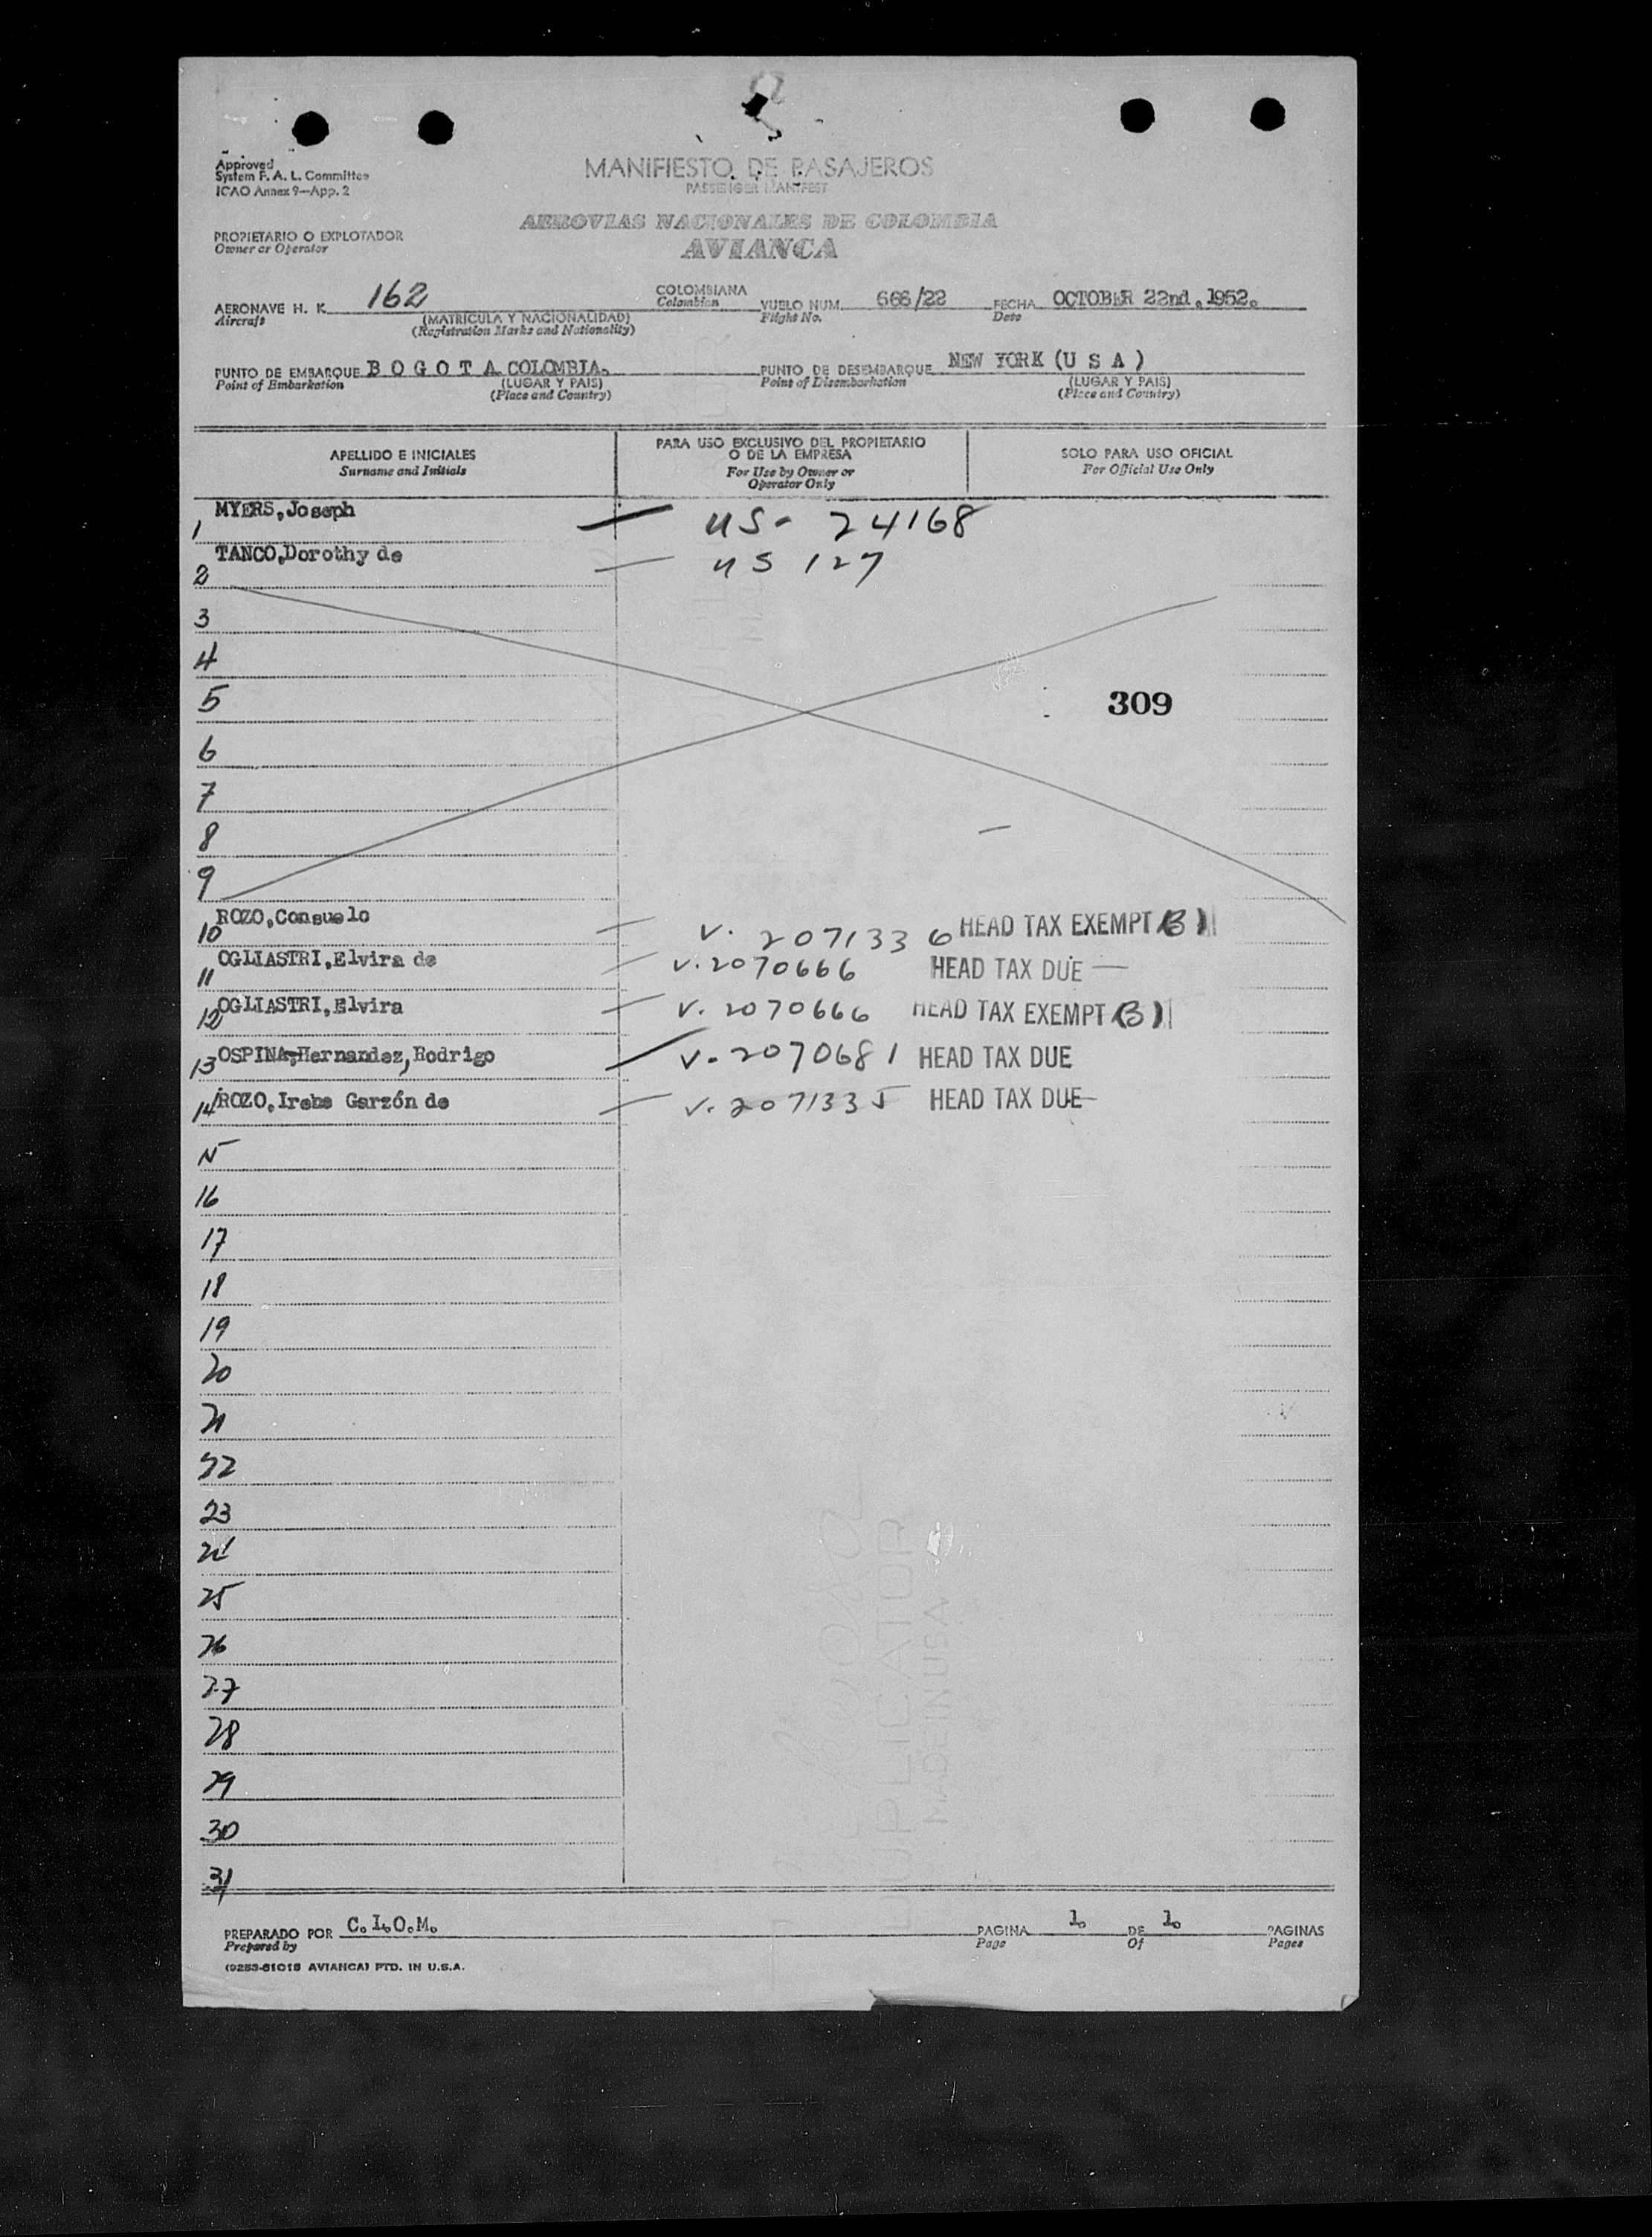 Approved
System F. A. L. Committee
ICAO Annex 9—App. 2
MANIFIESTO DE PASAJEROS
PASSENGER MANIFEST
AEROVIAS NACIONALES DE COLOMBIA
AVIANCA
PROPIETARIO O EXPLOTADOR
Owner or Operator
AERONAVE H. K. 162 COLOMBIANA VUELO NUM. 666/22 FECHA OCTOBER 22nd, 1952.
Aircraft (MATRICULA Y NACIONALIDAD) Colombian Flight No. Date
(Registration Marks and Nationality)
PUNTO DE EMBARQUE B O G O T A COLOMBIA. PUNTO DE DESEMBARQUE NEW YORK (U S A )
Point of Embarkation (LUGAR Y PAIS) Point of Disembarkation (LUGAR Y PAIS)
(Place and Country) (Place and Country)
APELLIDO E INICIALES PARA USO EXCLUSIVO DEL PROPIETARIO SOLO PARA USO OFICIAL
Surname and Initials O DE LA EMPRESA For Official Use Only
For Use by Owner or
Operator Only
1 MYERS,Joseph — US- 24168
2 TANCO,Dorothy de — US 127
3
4
5 309
6
7
8
9
10 ROZO,Consuelo — V. 2071336 HEAD TAX EXEMPT (B)
11 OGLIASTRI,Elvira de — V.2070666 HEAD TAX DUE
12 OGLIASTRI,Elvira — V. 2070666 HEAD TAX EXEMPT (B)
13 OSPINA-Hernandez,Rodrigo — V-2070681 HEAD TAX DUE
14 ROZO,Irebe Garzón de — V. 2071335 HEAD TAX DUE
15
16
17
18
19
20
21
22
23
24
25
26
27
28
29
30
31
PREPARADO POR C.L.O.M. PAGINA 1. DE 1. PAGINAS
Prepared by Page Of Pages
(9253-51015 AVIANCA) PTD. IN U.S.A.